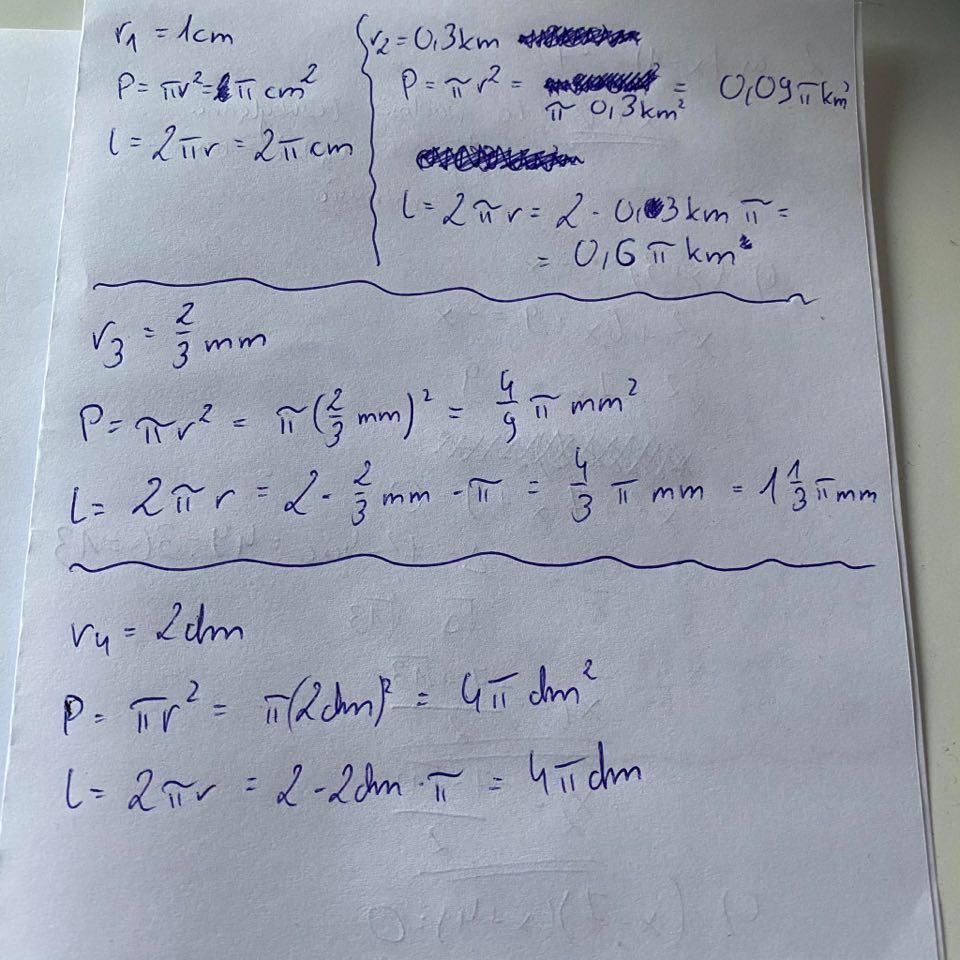 r₁ = 1cm
P = πr² = π cm²
l = 2πr = 2π cm
r₂ = 0,3km
P = πr² = π 0,3km² = 0,09πkm²
l = 2πr = 2 · 0,3km π =
= 0,6π km
r₃ = 2/3 mm
P = πr² = π(2/3 mm)² = 4/9 π mm²
l = 2πr = 2 · 2/3 mm · π = 4/3 π mm = 1 1/3 π mm
r₄ = 2dm
P = πr² = π(2dm)² = 4π dm²
l = 2πr = 2 · 2dm · π = 4πdm